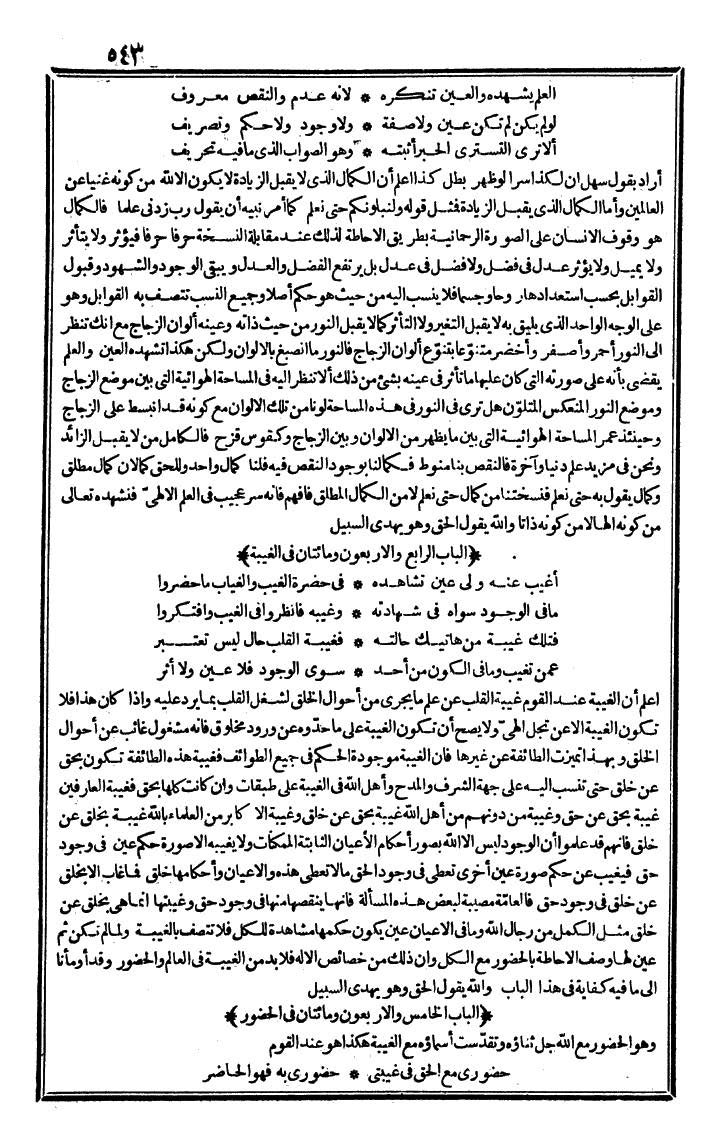 ٥٤٣
العلم يشهده والعين تنكره * لانه عدم والنقص معروف
لولم يكن لم تكن عين ولاصفة * ولا وجود ولا حكم وتصريف
ألا ترى القسترى الحبر أثبته * وهو الصواب الذى مافيه تحريف
أراد بقول سهل ان لكذا سر الوظهر بطل كذا اعلم أن الكمال الذى لا يقبل الزيادة لا يكون الالله من كونه غنيا عن
العالمين وأما الكمال الذى يقبل الزيادة فمثل قوله ولنبلونكم حتى نعلم كما أمر نبيه أن يقول رب زدنى علما فالكمال
هو وقوف الانسان على الصورة الرحمانية بطريق الاحاطة لذلك عند مقابلة النسخة حرفا حرفا فيؤثر ولا يتأثر
ولا يميل ولا يؤثر عدل فى فضل ولافضل فى عدل بل يرتفع الفضل والعدل ويبقى الوجود والشهود وقبول
القوابل بحسب استعدادها روحا وجسما فلا ينسب اليه من حيث هو حكم أصلا وجميع النسب تتصف به القوابل وهو
على الوجه الواحد الذى يليق به لا يقبل التغير ولا التأثر كما لا يقبل النور من حيث ذاته وعينه ألوان الزجاج مع انك تنظر
الى النور أحمر وأصفر وأخضر متنوعا بتنوع ألوان الزجاج فالنور ما انصبغ بالالوان ولكن هكذا تشهده العين والعلم
يقضى بأنه على صورته التى كان عليها ما تأثر فى عينه بشئ من ذلك ألا تنظر اليه فى المساحة الهوائية التى بين موضع الزجاج
وموضع النور المنعكس المتلون هل ترى فى النور فى هذه المساحة لونا من تلك الالوان مع كونه قد انبسط على الزجاج
وحينئذ عمر المساحة الهوائية التى بين ما يظهر من الالوان وبين الزجاج وكقوس قزح فالكامل من لا يقبل الزائد
ونحن فى مزيد علم دنيا وآخرة فالنقص بنا منوط فكمالنا بوجود النقص فيه فلنا كمال واحد وللحق كمالان كمال مطلق
وكمال يقول به حتى نعلم فنسختنا من كمال حتى نعلم لا من الكمال المطلق فافهم فانه سر عجيب فى العلم الالهى فنشهده تعالى
من كونه الها لا من كونه ذاتا والله يقول الحق وهو يهدى السبيل
﴿الباب الرابع والاربعون ومائتان فى الغيبة﴾
أغيب عنه ولى عين تشاهده * فى حضرة الغيب والغياب ما حضروا
مافى الوجود سواه فى شهادته * وغيبه فانظروا فى الغيب وافتكروا
فتلك غيبة من هاتيك حالته * فغيبة القلب حال ليس تعتبر
عمن تغيب ومافى الكون من أحد * سوى الوجود فلا عين ولا أثر
اعلم أن الغيبة عند القوم غيبة القلب عن علم ما يجرى من أحوال الخلق لشغل القلب بما يرد عليه واذا كان هذا فلا
تكون الغيبة الا عن تجل الهى ولا يصح أن تكون الغيبة على ما حدوه عن ورود مخلوق فانه مشغول غائب عن أحوال
الخلق وبهذا تميزت الطائفة عن غيرها فان الغيبة موجودة الحكم فى جميع الطوائف فغيبة هذه الطائفة تكون بحق
عن خلق حتى تنسب اليه على جهة الشرف والمدح وأهل الله فى الغيبة على طبقات وان كانت كلها بحق فغيبة العارفين
غيبة بحق عن حق وغيبة من دونهم من أهل الله غيبة بحق عن خلق وغيبة الاكابر من العلماء بالله غيبة بخلق عن
خلق فانهم قد علموا أن الوجود ليس الا الله بصور أحكام الأعيان الثابتة الممكنات ولا يغيبه الا صورة حكم عين فى وجود
حق فيغيب عن حكم صورة عين أخرى تعطى فى وجود الحق ما لا تعطى هذه والاعيان وأحكامها خلق فماغاب الا بخلق
عن خلق فى وجود حق فالعامة مصيبة لبعض هذه المسألة فانها ينقصها منها فى وجود حق وغيبتها انما هى بخلق عن
خلق مثل الكمل من رجال الله وما فى الاعيان عين يكون حكمها مشاهدة للكل فلا تتصف بالغيبة ولما لم تكن ثم
عين لها وصف الاحاطة بالحضور مع الكل وان ذلك من خصائص الاله فلا بد من الغيبة فى العالم والحضور وقد أومأنا
الى مافيه كفاية فى هذا الباب والله يقول الحق وهو يهدى السبيل
﴿الباب الخامس والاربعون ومائتان فى الحضور﴾
وهو الحضور مع الله جل ثناؤه وتقدست أسماؤه مع الغيبة هكذا هو عند القوم
حضورى مع الحق فى غيبتى * حضورى به فهو الحاضر